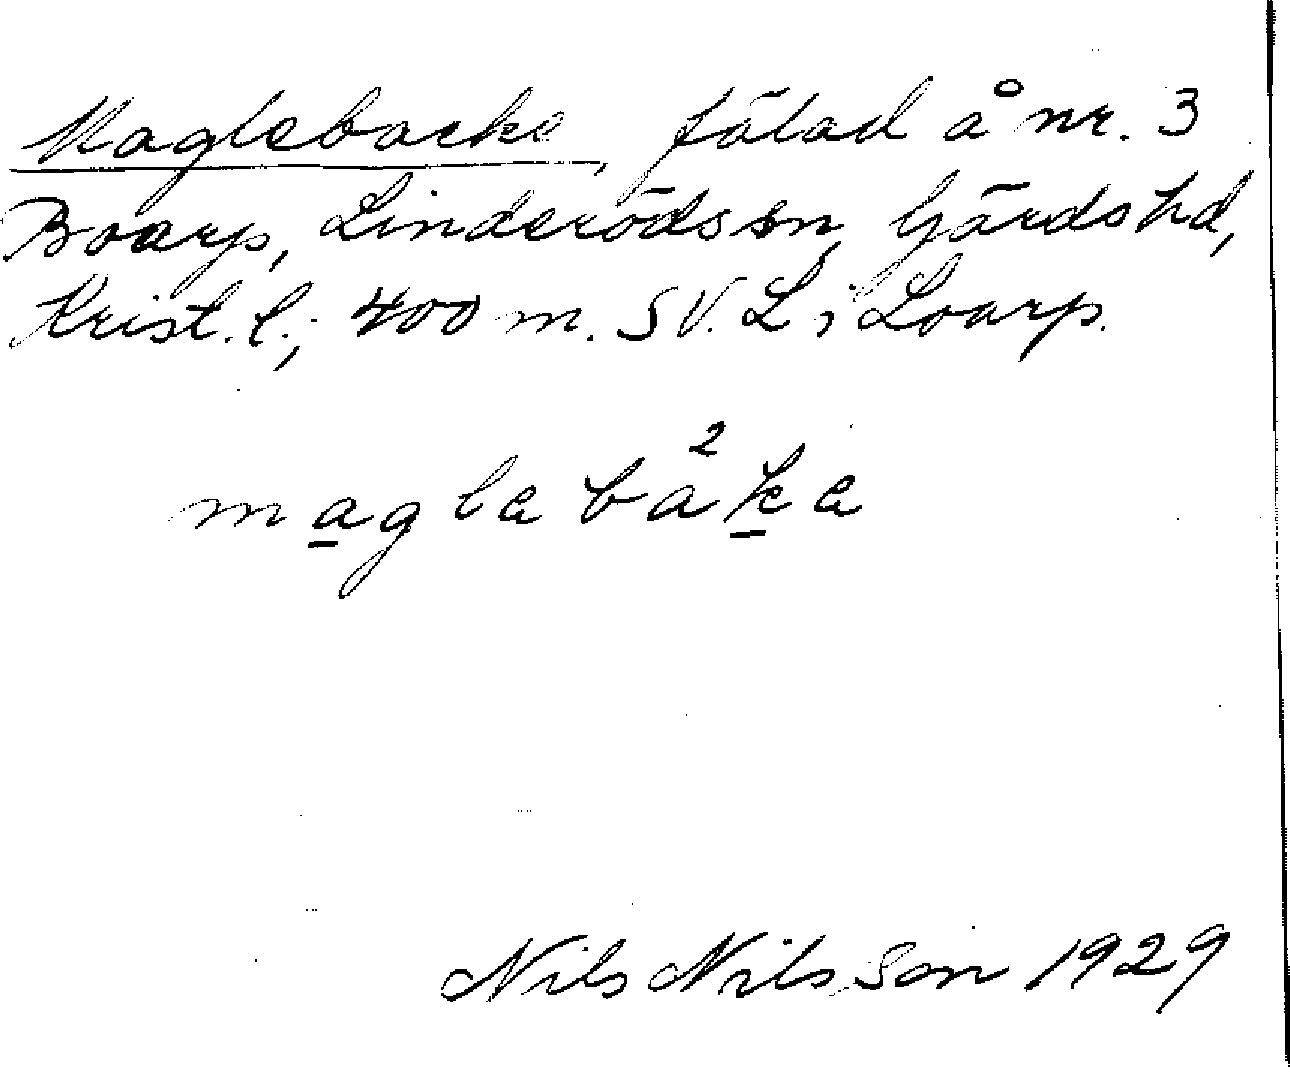 Maglebacke, fälad å nr. 3
Boarp, Linderöds sn, Gärds hd,
Krist. l.; 400 m. SV. L i Loarp.
maglaba²ka
Nils Nilsson 1929